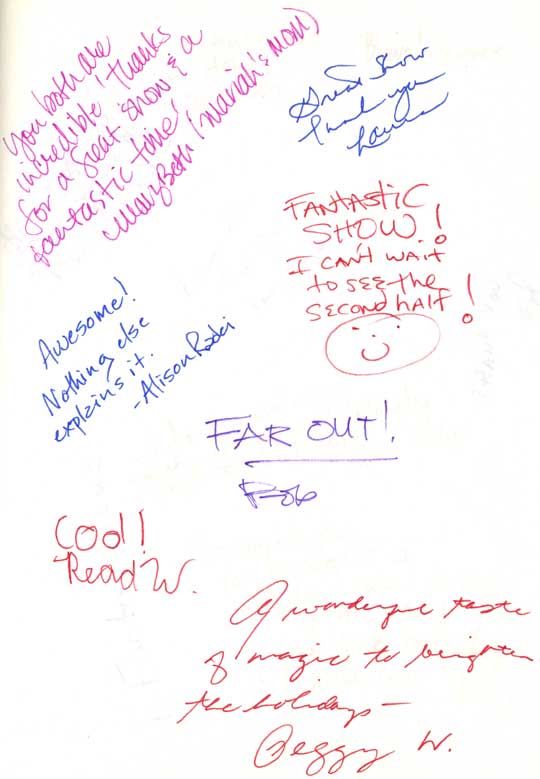 You both are
incredible! Thanks
for a great show & a
fantastic time!
MaryBeth (Mariah's mom)
Great Show
Thank you
FANTASTIC
SHOW!
I CAN'T WAIT
to SEE the
SECOND half!
Awesome!
Nothing else
explains it.
-Alison
FAR OUT!
Bob
Cool!
Read W.
A wonderful taste
of magic to brighten
the holidays—
Peggy W.